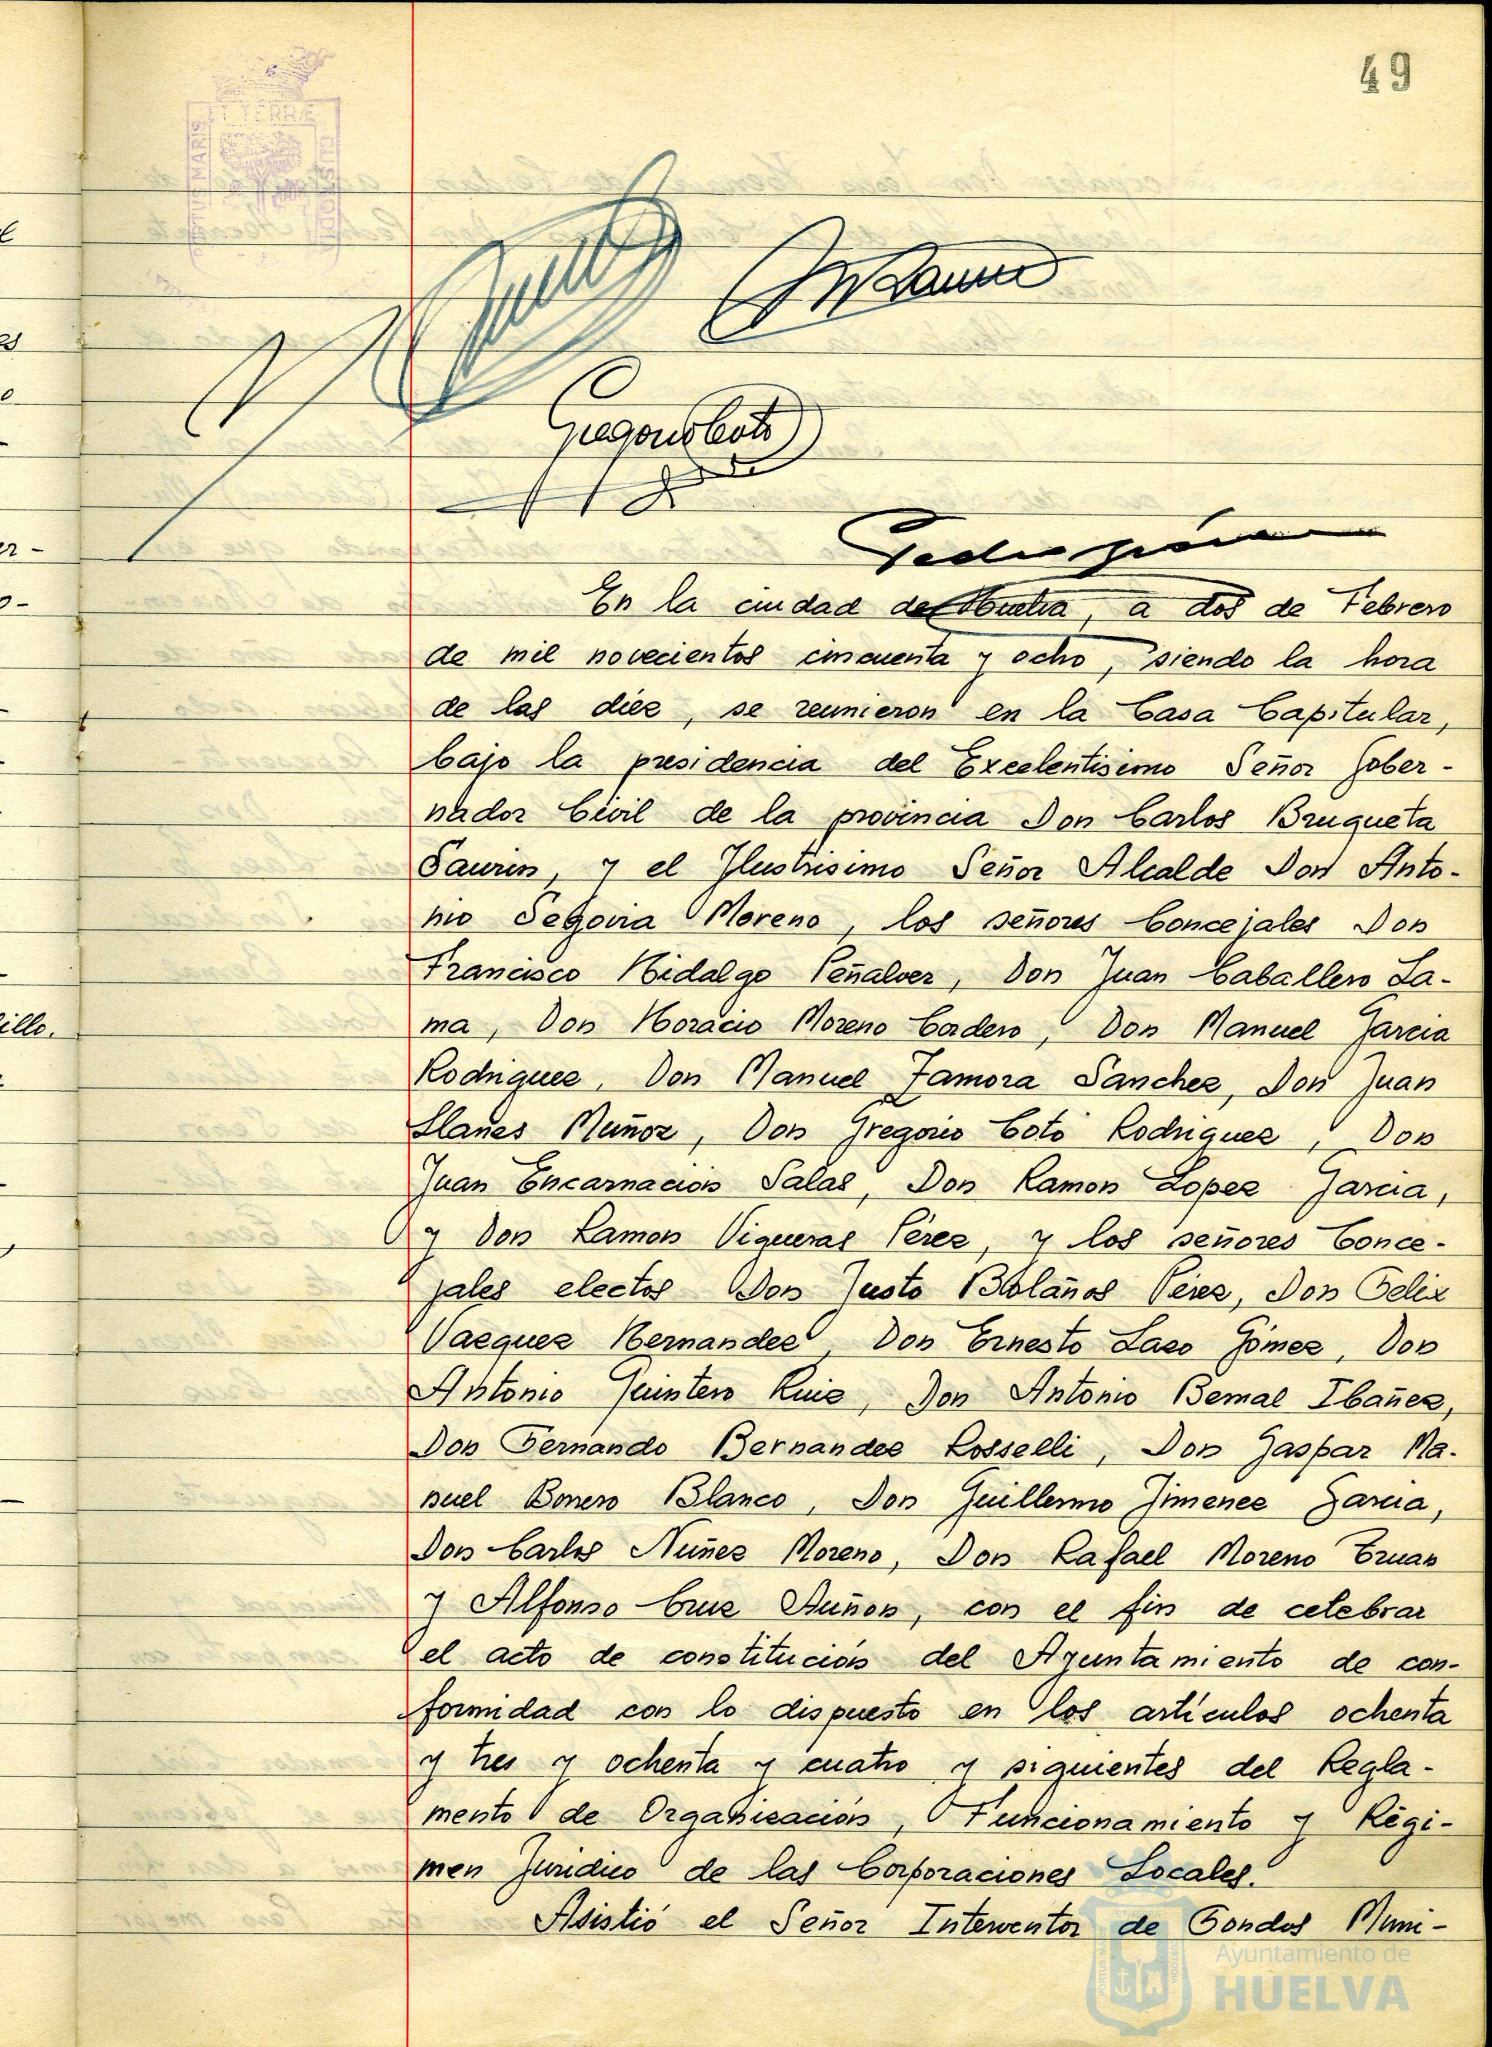 49
PORTVS MARIS
ET TERRÆ
CUSTODIA
Gregorio Coto
En la ciudad de Huelva, a dos de Febrero
de mil novecientos cincuenta y ocho, siendo la hora
de las diez, se reunieron en la Casa Capitular,
bajo la presidencia del Excelentisimo Señor Gober-
nador Civil de la provincia Don Carlos Bruqueta
Saurin, y el Ilustrisimo Señor Alcalde Don Anto-
nio Segovia Moreno, los señores Concejales Don
Francisco Hidalgo Peñalver, Don Juan Caballero La-
ma, Don Horacio Moreno Cordero, Don Manuel Garcia
Rodriguez, Don Manuel Zamora Sanchez, Don Juan
Llanes Muñoz, Don Gregorio Coto Rodriguez, Don
Juan Encarnación Salas, Don Ramon Lopez Garcia,
y Don Ramon Vigueras Pérez, y los señores Conce-
jales electos Don Justo Bolaños Pérez, Don Felix
Vazquez Hernandez, Don Ernesto Lazo Gómez, Don
Antonio Quintero Ruiz, Don Antonio Bernal Ibañez,
Don Fernando Bernandez Rosselli, Don Gaspar Ma-
nuel Borrero Blanco, Don Guillermo Jimenez Garcia,
Don Carlos Nuñez Moreno, Don Rafael Moreno Truan
y Alfonso Cruz Auñon, con el fin de celebrar
el acto de constitución del Ayuntamiento de con-
formidad con lo dispuesto en los artículos ochenta
y tres y ochenta y cuatro y siguientes del Regla-
mento de Organización, Funcionamiento y Régi-
men Juridico de las Corporaciones Locales.
Asistió el Señor Interventor de Fondos Muni-
Ayuntamiento de
HUELVA